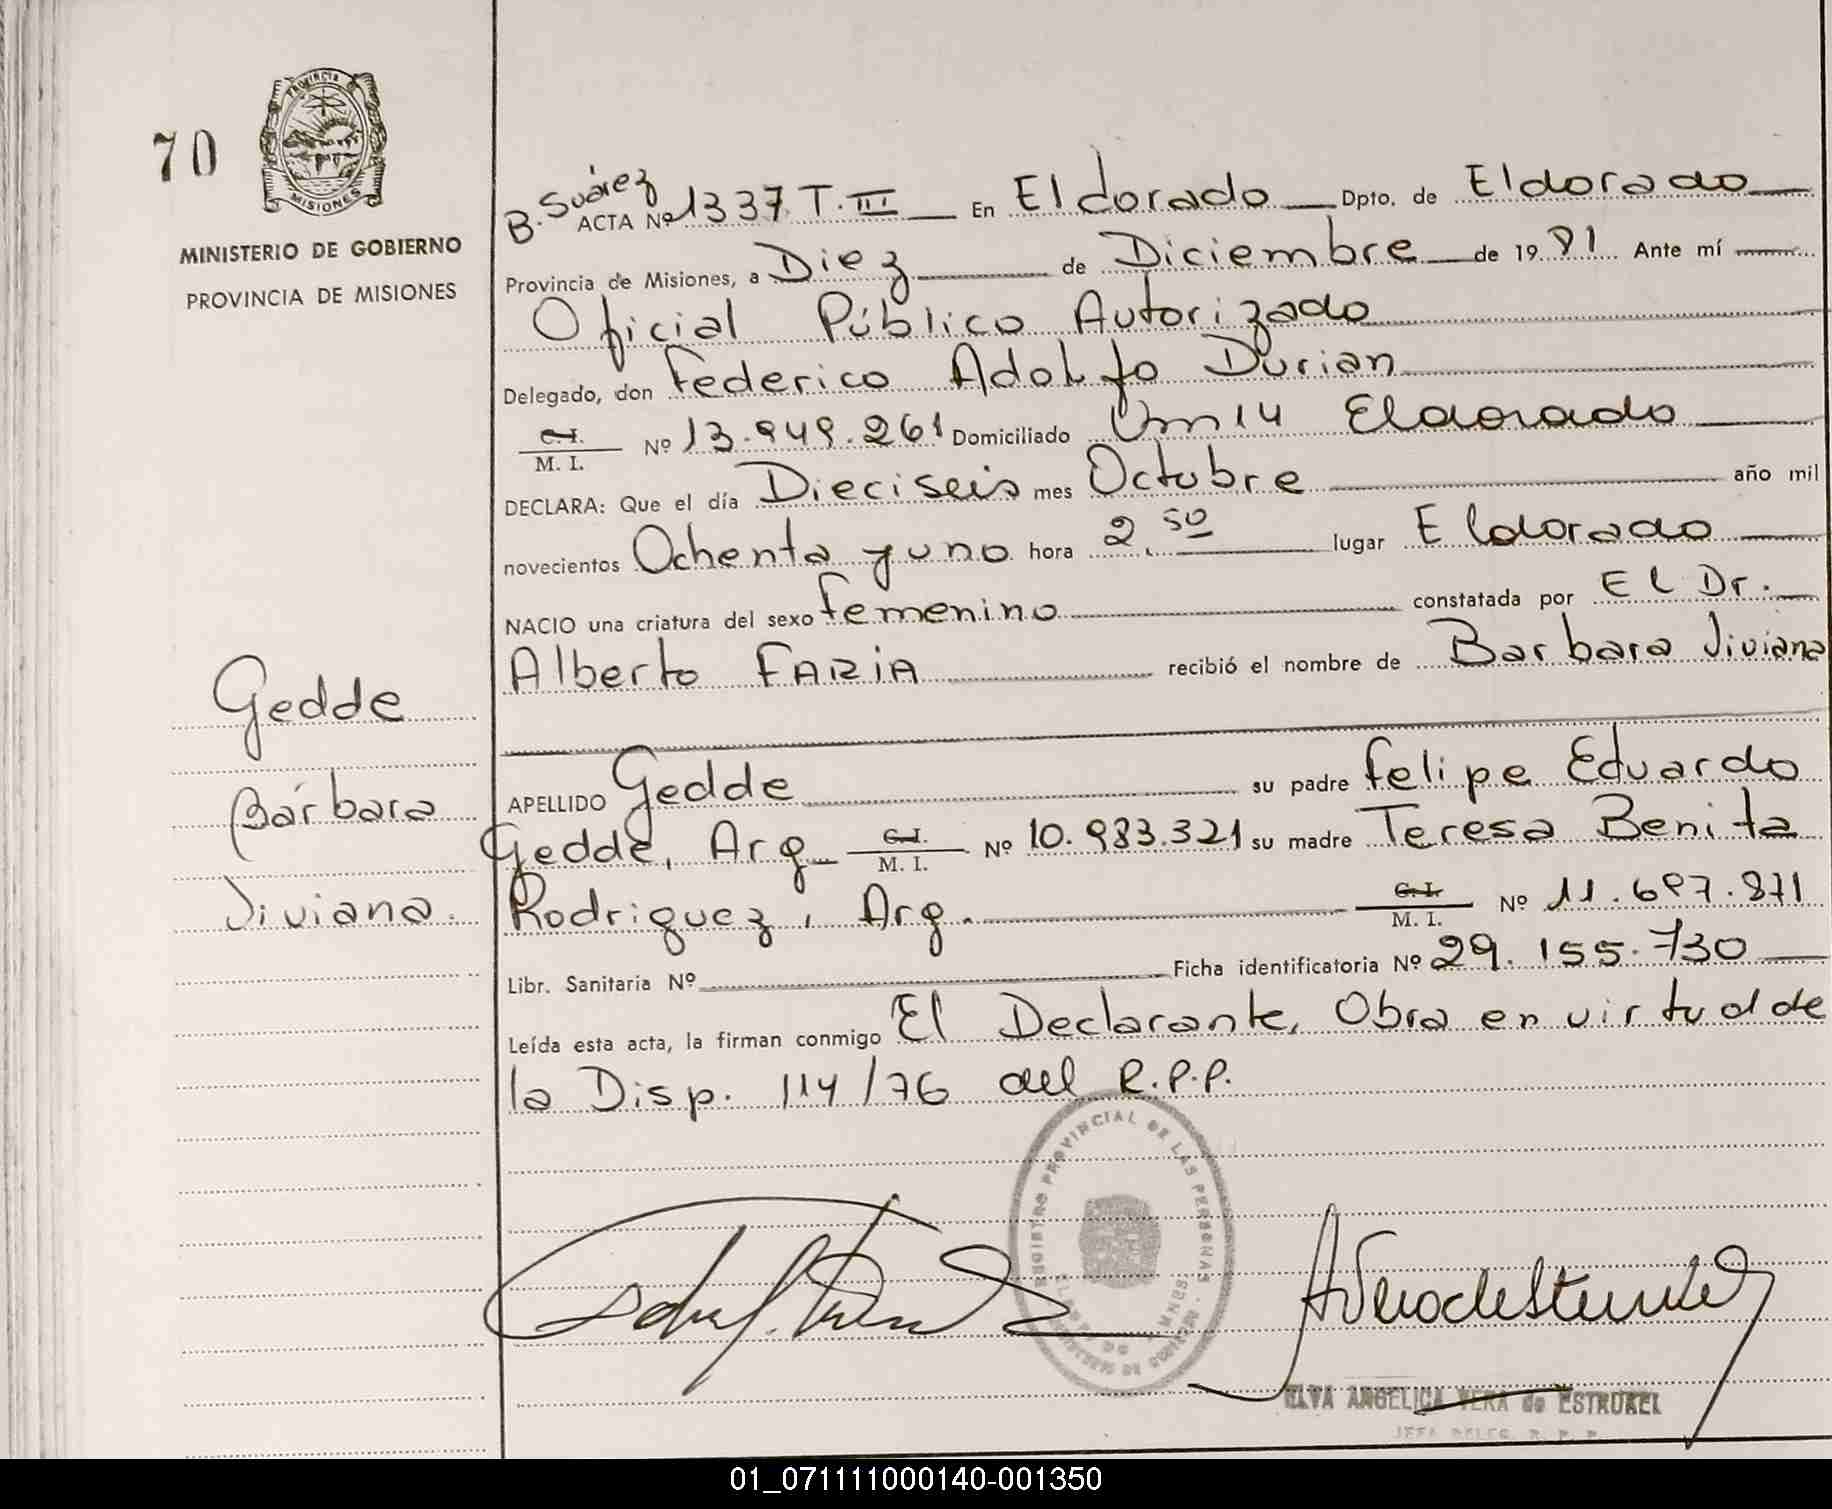 70
PROVINCIA
MISIONES
MINISTERIO DE GOBIERNO
PROVINCIA DE MISIONES
Gedde
Bárbara
Viviana.
B. Suárez
ACTA Nº 1337 T. III En Eldorado Dpto. de Eldorado
Provincia de Misiones, a Diez de Diciembre de 1981 Ante mí
Oficial Público Autorizado
Delegado, don Federico Adolfo Durian
C.I. M. I. Nº 13.949.261 Domiciliado Km 14 Eldorado
DECLARA: Que el día Dieciseis mes Octubre año mil
novecientos Ochenta y uno hora 2 50 lugar Eldorado
NACIO una criatura del sexo femenino constatada por El Dr.
Alberto FARIA recibió el nombre de Barbara Viviana
APELLIDO Gedde su padre Felipe Eduardo
Gedde, Arg C.I. M. I. Nº 10.983.321 su madre Teresa Benita
Rodriguez, Arg. C.I. M. I. Nº 11.697.871
Libr. Sanitaria Nº Ficha identificatoria Nº 29.155.730
Leída esta acta, la firman conmigo El Declarante, Obra en virtud de
la Disp. 114/76 del R.P.P.
REGISTRO PROVINCIAL DE LAS PERSONAS
ELVA ANGELICA VERA de ESTRUKEL
JEFA DELEG. R. P. P.
01_071111000140-001350